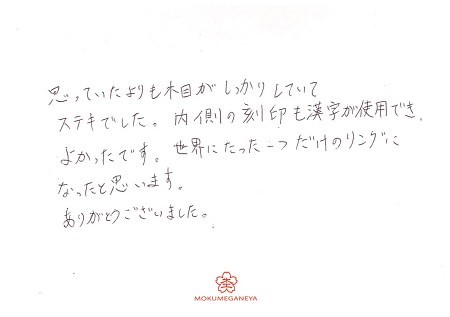 思っていたよりも木目がしっかりしていて
ステキでした。内側の刻印も漢字が使用でき、
よかったです。世界にたった一つだけのリングに
なったと思います。
ありがとうございました。
MOKUMEGANEYA